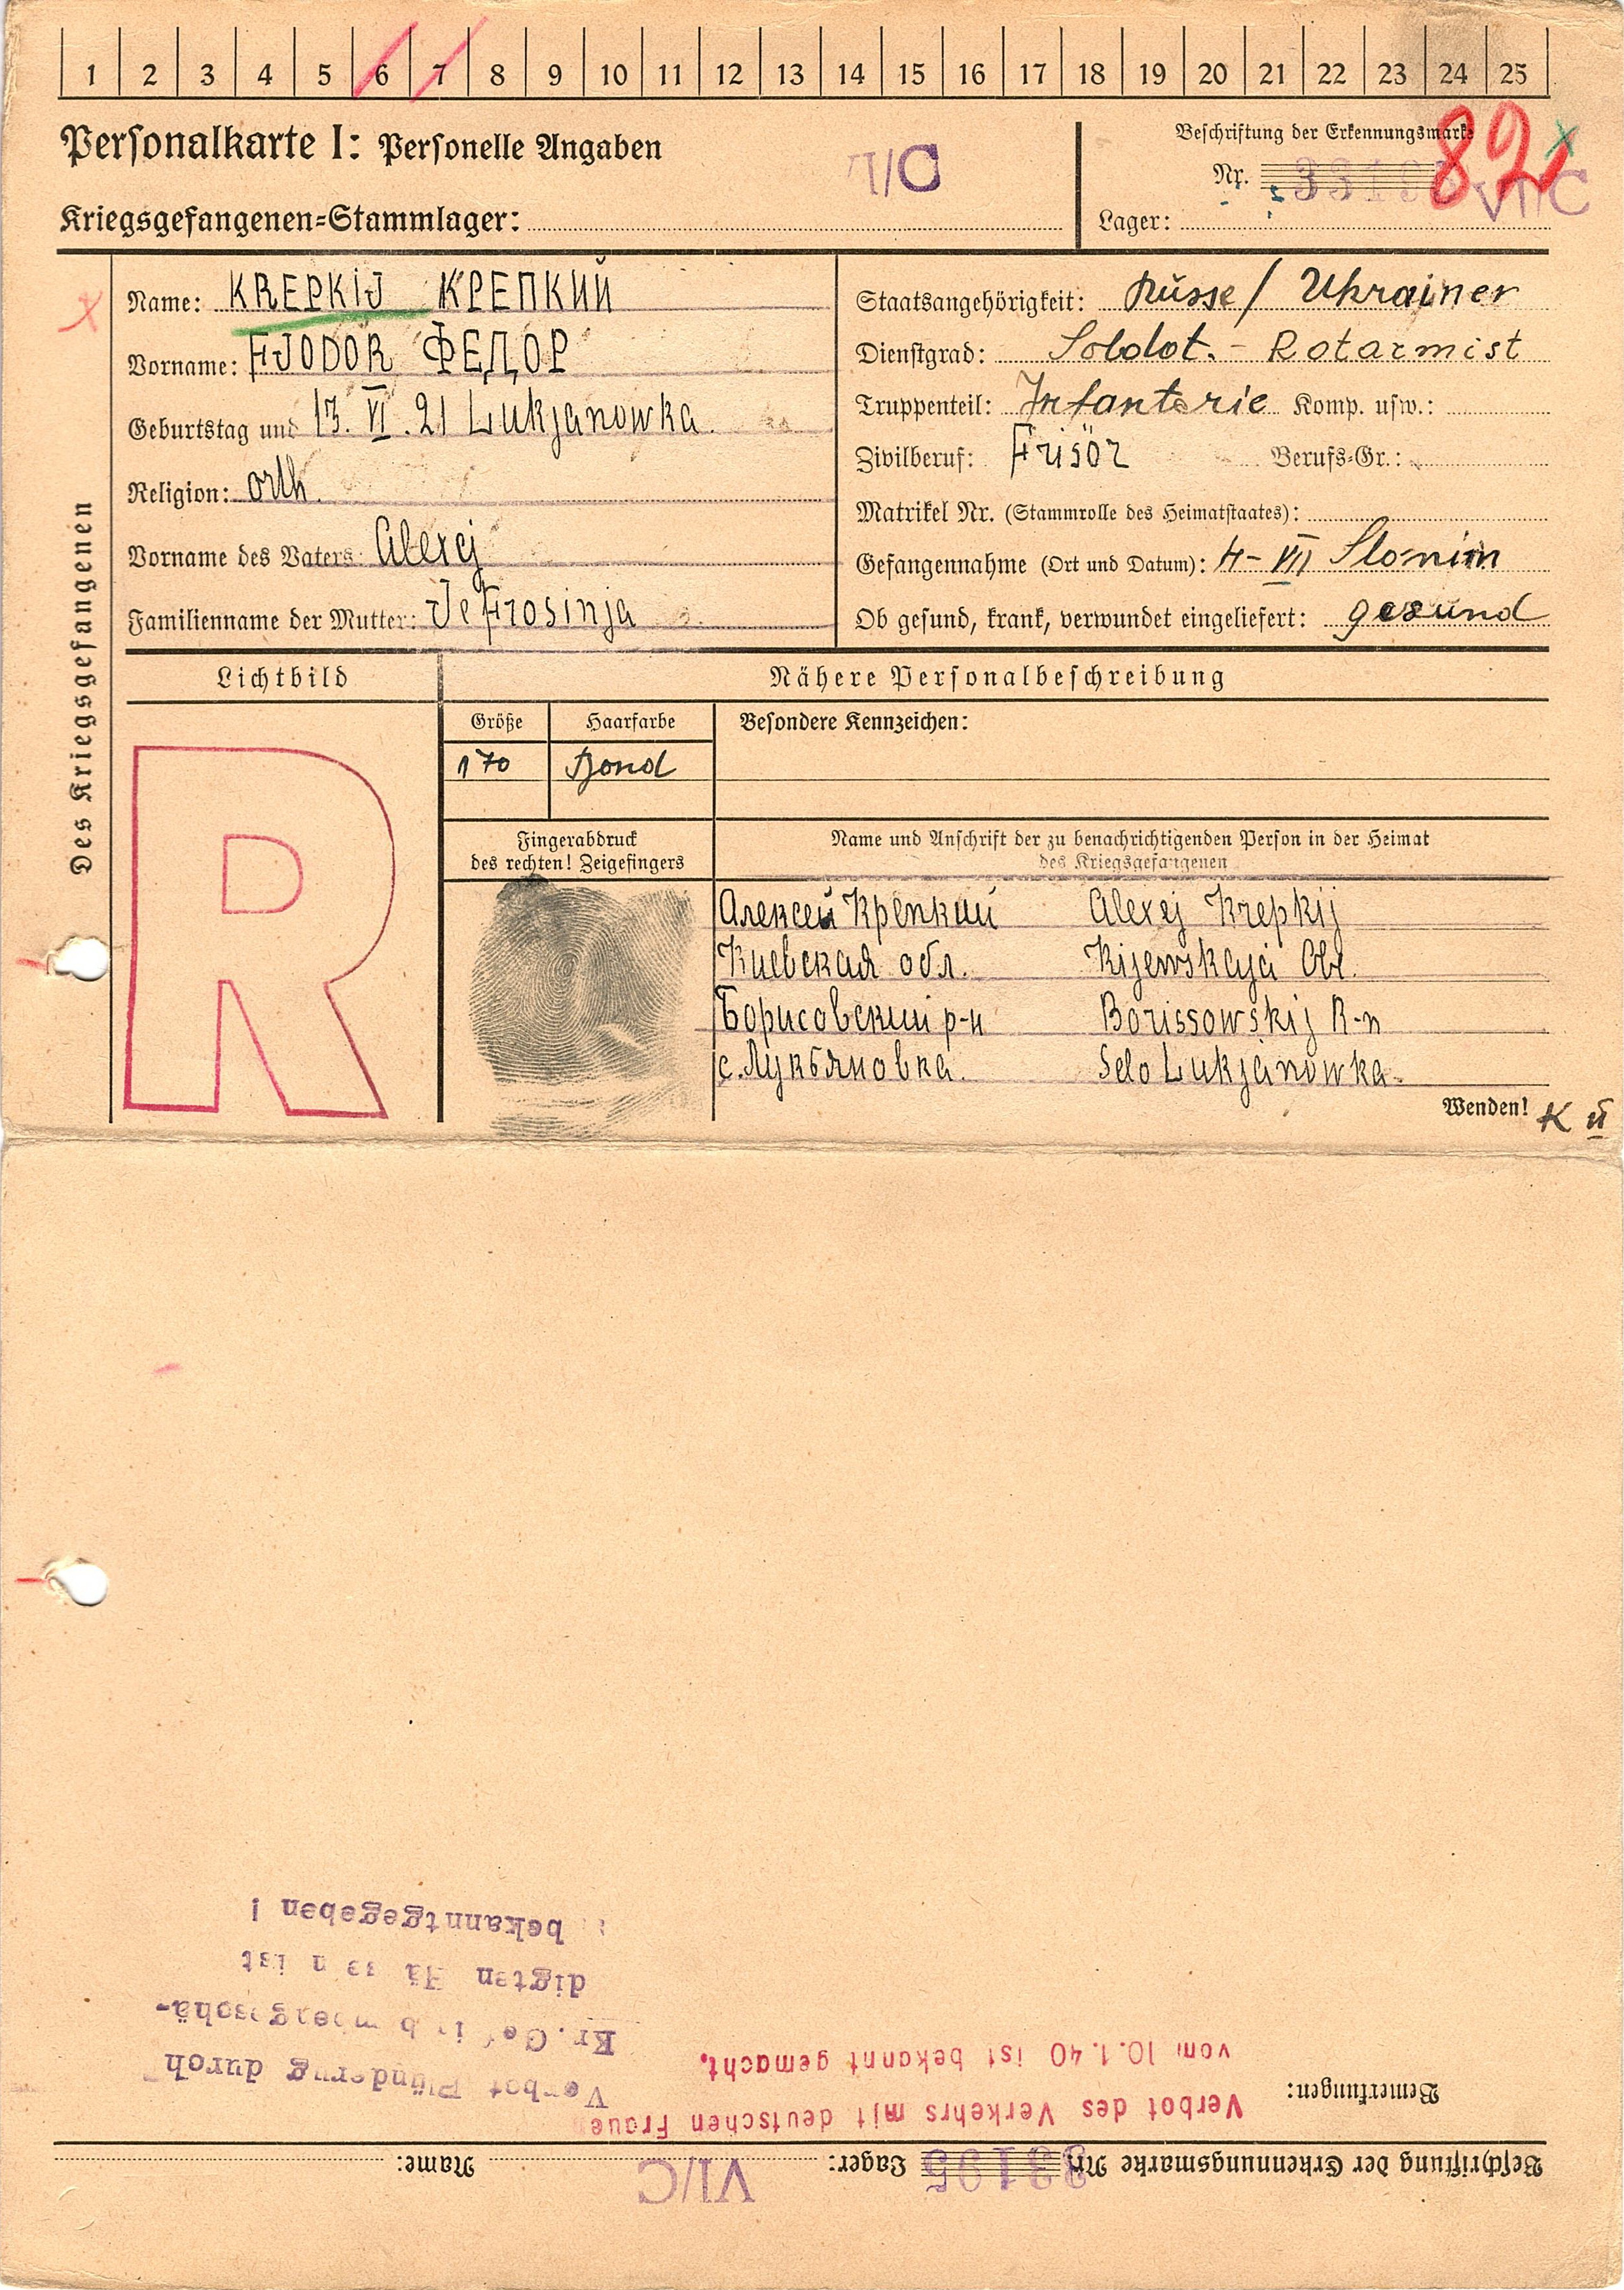 1 2 3 4 5 6 7 8 9 10 11 12 13 14 15 16 17 18 19 20 21 22 23 24 25
Personalkarte I: Personelle Angaben
VI/C
Beschriftung der Erkennungsmarke
Nr. 33195
82
Kriegsgefangenen-Stammlager:
Lager: VI/C
Des Kriegsgefangenen
Name: KREPKIJ КРЕПКИЙ
Vorname: FJODOR ФЕДОР
Geburtstag und 13. VI. 21 Lukjanowka.
Religion: orth.
Vorname des Vaters: Alexej
Familienname der Mutter: Jefrosinja
Staatsangehörigkeit: Russe / Ukrainer
Dienstgrad: Soldat. - Rotarmist
Truppenteil: Infanterie Komp. usw.:
Zivilberuf: Frisör Berufs-Gr.:
Matrikel Nr. (Stammrolle des Heimatstaates):
Gefangennahme (Ort und Datum): 4-VII Slonim
Ob gesund, krank, verwundet eingeliefert: gesund
Lichtbild
R
Nähere Personalbeschreibung
Größe Haarfarbe Besondere Kennzeichen:
170 Blond
Fingerabdruck
des rechten! Zeigefingers
Name und Anschrift der zu benachrichtigenden Person in der Heimat
des Kriegsgefangenen
Алексей Крепкий Alexej Krepkij
Киевская обл. Kijewskaja Obl.
Борисовский р-н Borissowskij R-n
с. Лукьяновка. Selo Lukjanowka.
Wenden!
Beschriftung der Erkennungsmarke Nr. 33195 Lager: VI/C Name:
Bemerkungen:
Verbot des Verkehrs mit deutschen Frauen
vom 10.1.40 ist bekannt gemacht.
Verbot Plünderug durch
Kr.Gef. in bombengeschä-
digten Häusern ist
bekanntgegeben !